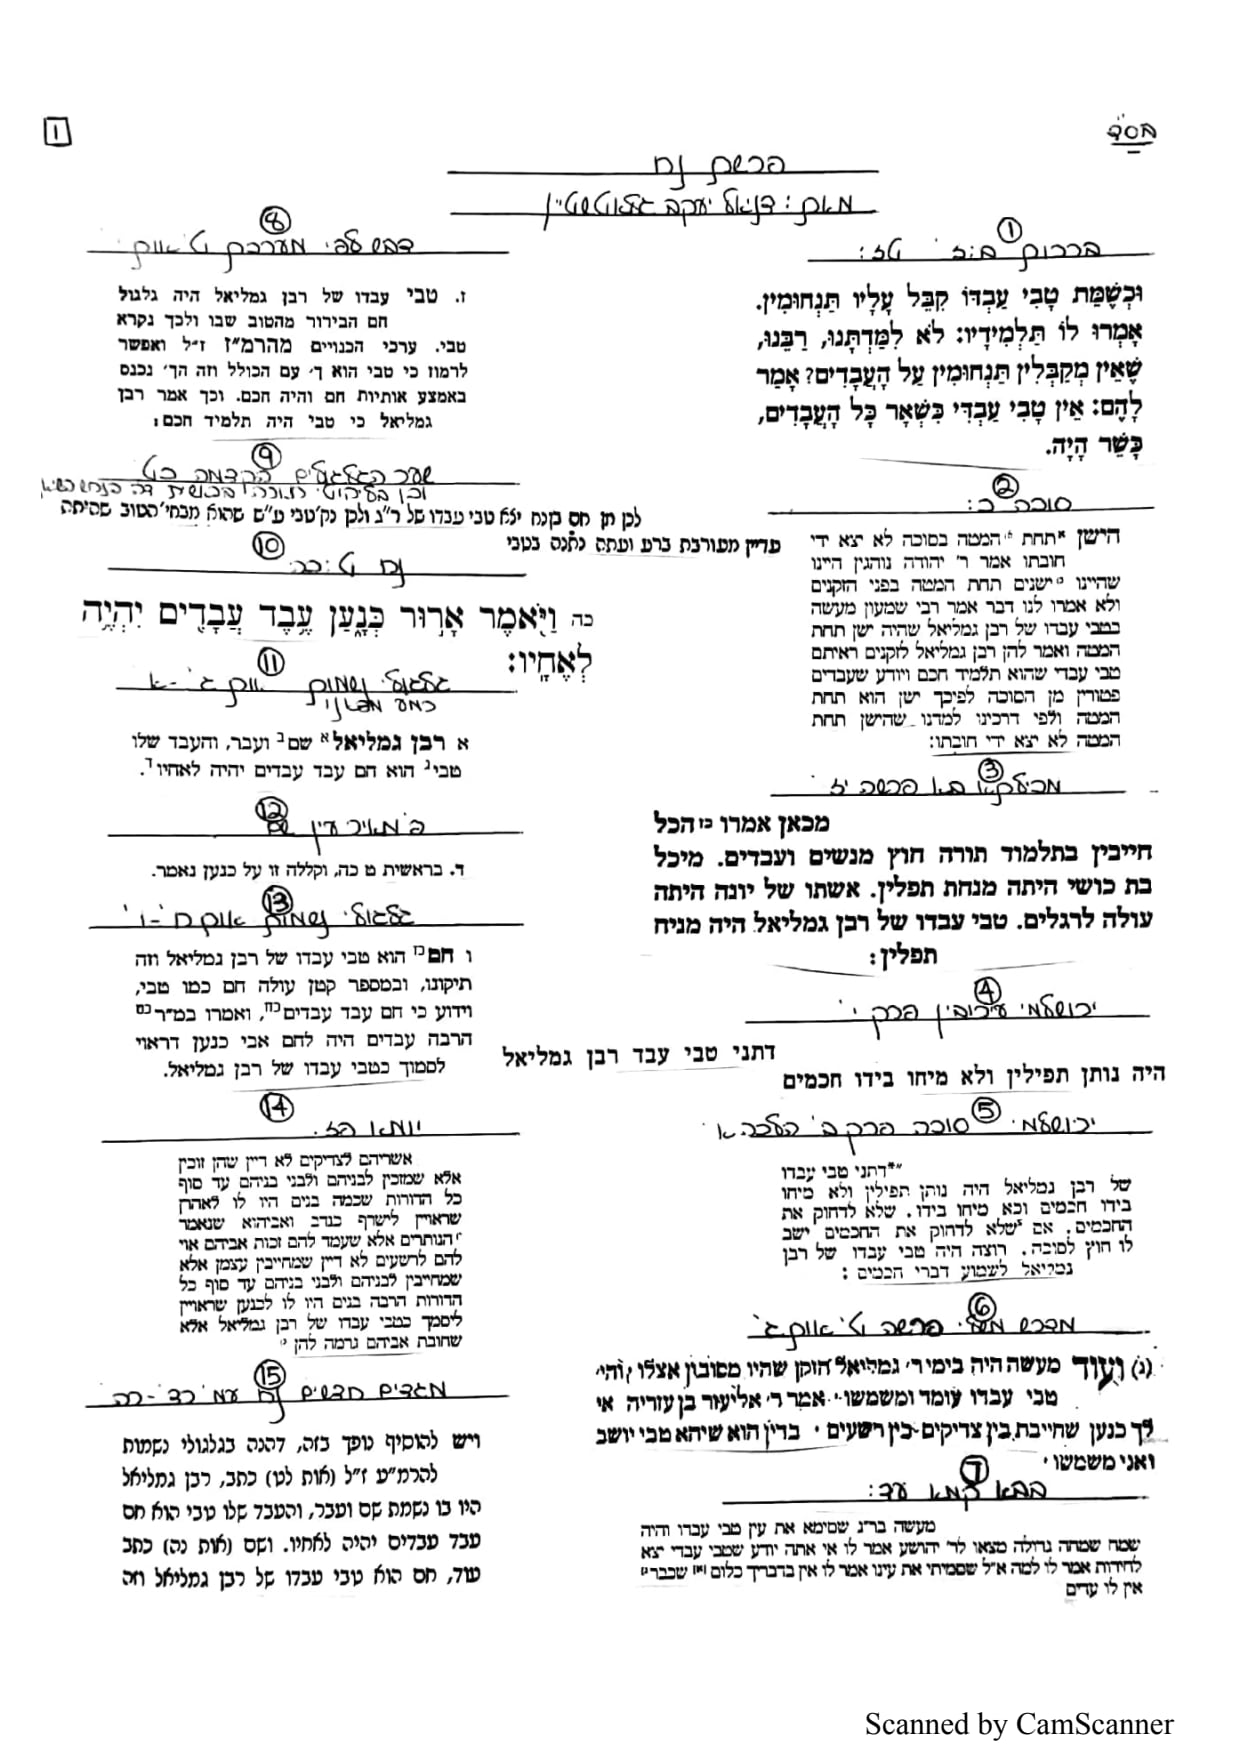 בסד
1
פרשת נח
מאת: דניאל יעקב גלוטשטיין
①
ברכות ב:ז טז:
וּכְשֶׁמֵּת טָבִי עַבְדּוֹ קִבֵּל עָלָיו תַּנְחוּמִין.
אָמְרוּ לוֹ תַּלְמִידָיו: לֹא לִמַּדְתָּנוּ, רַבֵּנוּ,
שֶׁאֵין מְקַבְּלִין תַּנְחוּמִין עַל הָעֲבָדִים? אָמַר
לָהֶם: אֵין טָבִי עַבְדִּי כִּשְׁאָר כָּל הָעֲבָדִים,
כָּשֵׁר הָיָה.
②
סוכה כ:
הישן תחת המטה בסוכה לא יצא ידי
חובתו אמר ר' יהודה נוהגין היינו
שהיינו ישנים תחת המטה בפני הזקנים
ולא אמרו לנו דבר אמר רבי שמעון מעשה
בטבי עבדו של רבן גמליאל שהיה ישן תחת
המטה ואמר להן רבן גמליאל לזקנים ראיתם
טבי עבדי שהוא תלמיד חכם ויודע שעבדים
פטורין מן הסוכה לפיכך ישן הוא תחת
המטה ולפי דרכינו למדנו שהישן תחת
המטה לא יצא ידי חובתו:
③
מכילתא בא פרשה יז
מכאן אמרו הכל
חייבין בתלמוד תורה חוץ מנשים ועבדים. מיכל
בת כושי היתה מנחת תפלין. אשתו של יונה היתה
עולה לרגלים. טבי עבדו של רבן גמליאל היה מניח
תפלין:
④
ירושלמי עירובין פרק י'
דתני טבי עבד רבן גמליאל
היה נותן תפילין ולא מיחו בידו חכמים
⑤
ירושלמי סוכה פרק ב' הלכה א
דתני טבי עבדו
של רבן גמליאל היה נותן תפילין ולא מיחו
בידו חכמים וכא מיחו בידו. שלא לדחוק את
החכמים. אם שלא לדחוק את החכמים ישב
לו חוץ לסוכה. רוצה היה טבי עבדו של רבן
גמליאל לשמוע דברי חכמים:
⑥
מדרש משלי פרשה ט' אות ג'
(ג) ועוד מעשה היה בימי ר' גמליאל הזקן שהיו מסובין אצלו והי'
טבי עבדו עומד ומשמשו. אמר ר' אליעזר בן עזריה אי
לך כנען שחייבת בין צדיקים בין רשעים. בדין הוא שיהא טבי יושב
ואני משמשו.
⑦
בבא קמא עד:
מעשה בר"ג שסימא את עין טבי עבדו והיה
שמח שמחה גדולה מצאו לר' יהושע אמר לו אי אתה יודע שטבי עבדי יצא
לחירות אמר לו למה א"ל שסמיתי את עינו אמר לו אין בדבריך כלום שכבר
אין לו עדים
⑧
דבש לפי מערכת ט' אות
ז. טבי עבדו של רבן גמליאל היה גלגול
חם הבירור מהטוב שבו ולכך נקרא
טבי. ערכי הכנויים מהרמ"ז ז"ל ואפשר
לרמוז כי טבי הוא ך' עם הכולל וזה הך' נכנס
באמצע אותיות חם והיה חכם. וכך אמר רבן
גמליאל כי טבי היה תלמיד חכם:
⑨
שער הגלגולים הקדמה כט
וכן בליקוטי תורה
לכן מן חס בן נח יצא טבי עבדו של ר"ג ולכן נק' טבי ע"ש שהוא מבחי' הטוב שהיתה
עדיין מעורבת ברע ועתה נתנה בטבי
⑩
נח ט:כה
כה וַיֹּאמֶר אָרוּר כְּנָעַן עֶבֶד עֲבָדִים יִהְיֶה
לְאֶחָיו:
⑪
גלגולי נשמות אות ג'-א
רמע מפאנו
א רבן גמליאל שם ועבר, והעבד שלו
טבי הוא חם עבד עבדים יהיה לאחיו.
⑫
פ' מאיר עין שם
ד. בראשית ט כה, וקללה זו על כנען נאמר.
⑬
גלגולי נשמות אות ח'-ו'
ו חם הוא טבי עבדו של רבן גמליאל וזה
תיקונו, ובמספר קטן עולה חם כמו טבי,
וידוע כי חם עבד עבדים, ואמרו במ"ר
הרבה עבדים היה לחם אבי כנען דראוי
לסמוך כטבי עבדו של רבן גמליאל.
⑭
יומא פז.
אשריהם לצדיקים לא דיין שהן זוכין
אלא שמזכין לבניהם ולבני בניהם עד סוף
כל הדורות שכמה בנים היו לו לאהרן
שראויין לישרף כנדב ואביהוא שנאמר
הנותרים אלא שעמד להם זכות אביהם אוי
להם לרשעים לא דיין שמחייבין עצמן אלא
שמחייבין לבניהם ולבני בניהם עד סוף כל
הדורות הרבה בנים היו לו לכנען שראויין
ליסמך כטבי עבדו של רבן גמליאל אלא
שחובת אביהם גרמה להן
⑮
מגדים חדשים נח עמ' רד'-רה
ויש להוסיף נופך בזה, דהנה בגלגולי נשמות
להרמ"ע ז"ל (אות לט) כתב, רבן גמליאל
היו בו נשמת שם ועבר, והעבד שלו טבי הוא חם
עבד עבדים יהיה לאחיו. ושם (אות נה) כתב
עוד, חם הוא טבי עבדו של רבן גמליאל וזה
Scanned by CamScanner